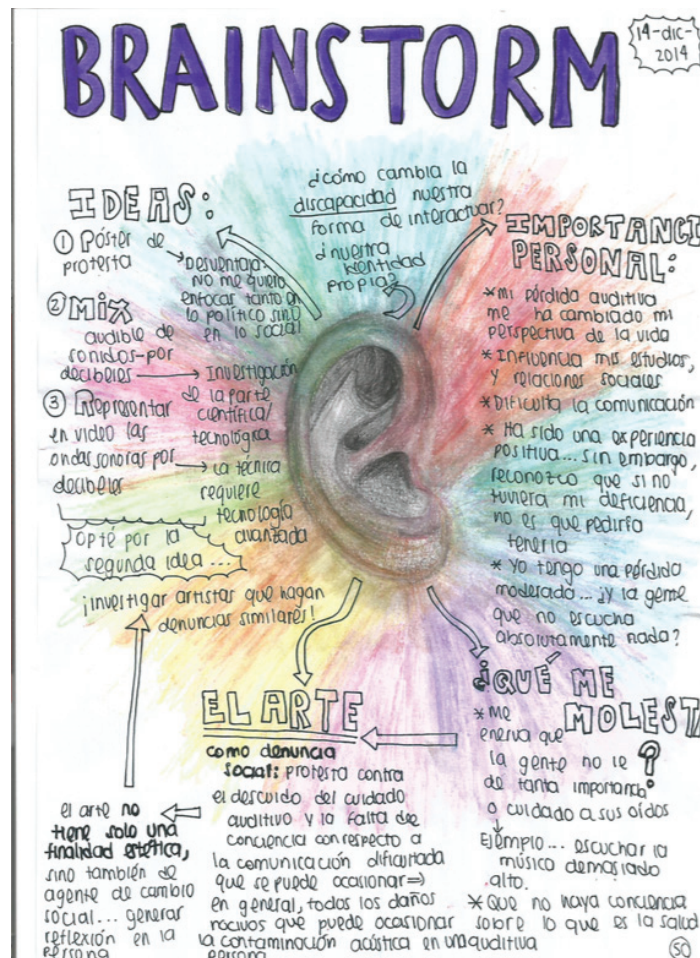 BRAINSTORM
14-dic-
2014
¿cómo cambia la
discapacidad nuestra
forma de interactuar?
¿nuestra
identidad
propia?
IDEAS:
① Póster de
protesta
→ Desventaja:
no me quiero
enfocar tanto en
lo político sino
en lo social
② Mix
audible de
sonidos-por
decibeles → Investigación
de la parte
científica/
tecnológica
③ Representar
en video las
ondas sonoras por
decibeles → La técnica
requiere
tecnología
avanzada
Opté por la
segunda idea...
¡investigar artistas que hagan
denuncias similares!
IMPORTANCI
PERSONAL:
*mi pérdida auditiva
me ha cambiado mi
perspectiva de la vida
* Influencia mis estudios,
y relaciones sociales
* Dificulta la comunicación
* Ha sido una experiencia
positiva... sin embargo,
reconozco que si no
tuviera mi deficiencia,
no es que pediría
tenerla
* Yo tengo una pérdida
moderada... ¡y la gente
que no escucha
absolutamente nada?
¿QUÉ ME
MOLESTA
?
* Me
enerva que
la gente no le
da tanta importancia
o cuidado a sus oídos
Ejemplo... escuchar la
música demasiado
alto.
* Que no haya conciencia
sobre lo que es la salud
auditiva
EL ARTE
como denuncia
social: protesta contra
el descuido del cuidado
auditivo y la falta de
conciencia con respecto a
la comunicación dificultada
que se puede ocasionar ⇒
en general, todos los daños
nocivos que puede ocasionar
la contaminación acústica en una
persona
el arte no
tiene solo una
finalidad estética,
sino también de
agente de cambio
social... generar
reflexión en la
persona
50